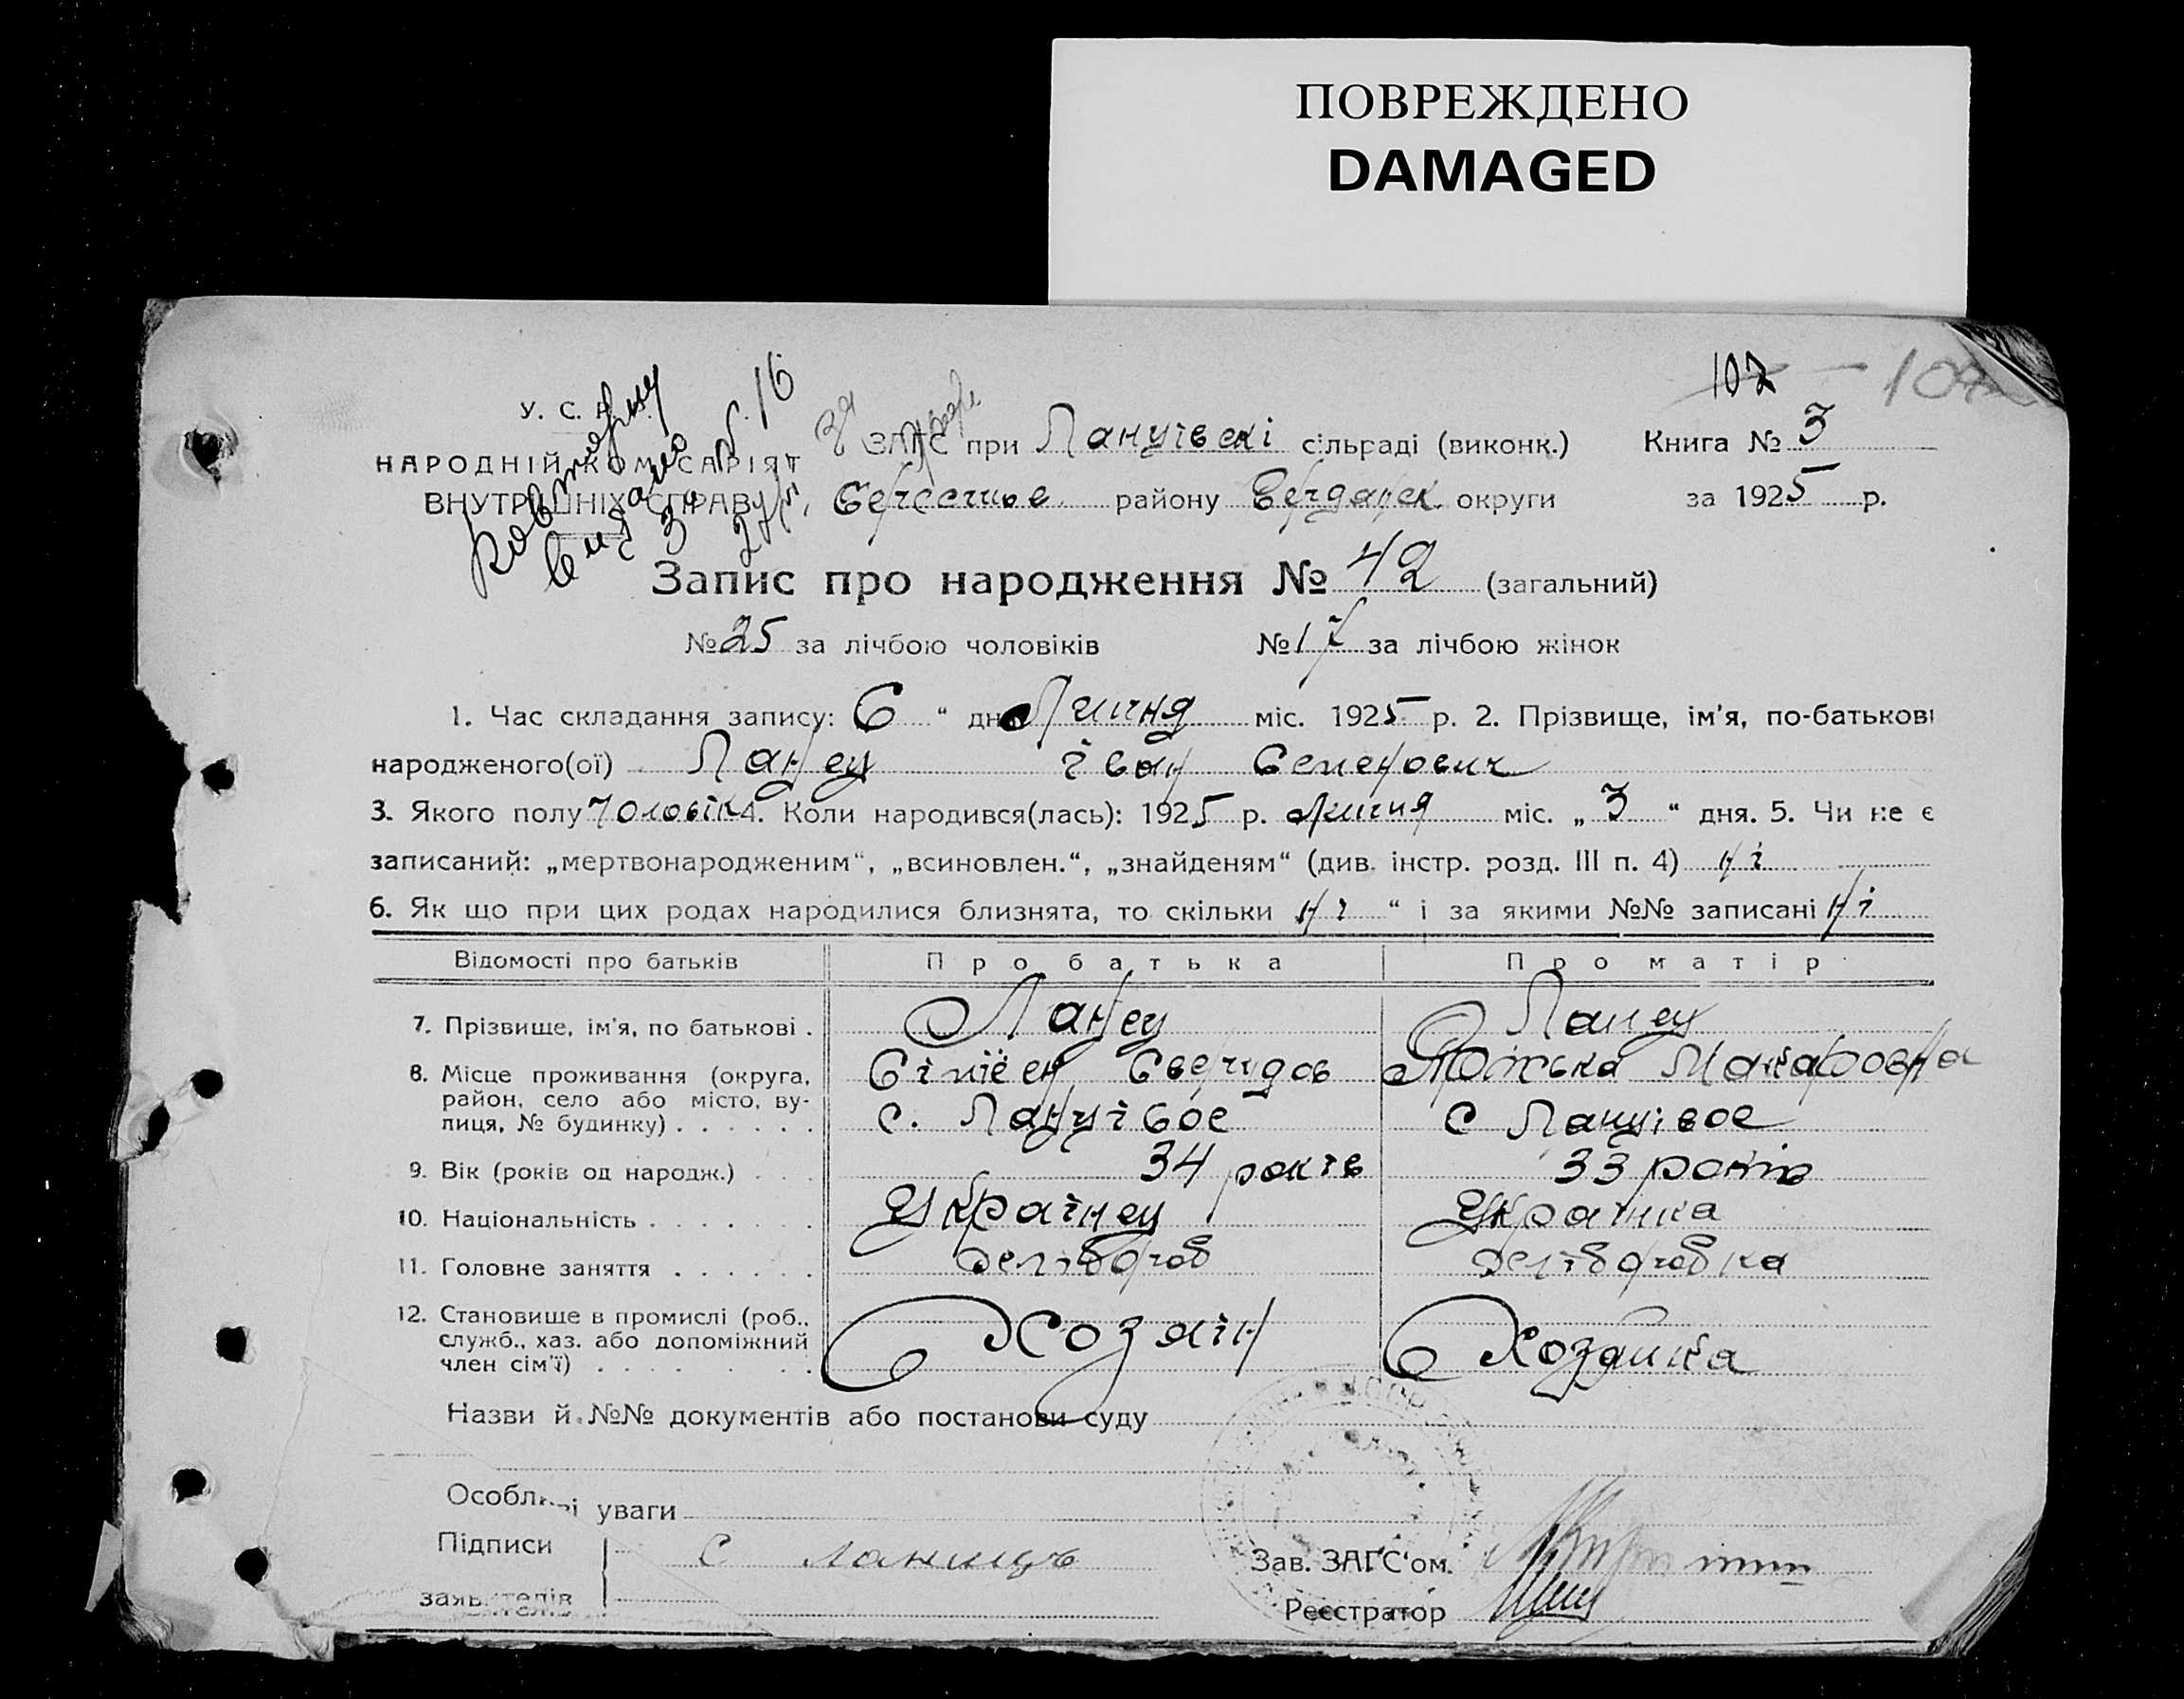 ПОВРЕЖДЕНО
DAMAGED
107 — 107
У. С. Р. Р.
НАРОДНІЙ КОМІСАРІЯТ
ВНУТРІШНІХ СПРАВ
ЗАГС при Лануівскі сільраді (виконк.) Книга № 3
району Бердянск. округи за 1925 р.
Запис про народження № 42 (загальний)
№ 25 за лічбою чоловіків № 17 за лічбою жінок
1. Час складання запису: 6 “ дня Липня міс. 1925 р. 2. Прізвище, ім’я, по-батькові
народженого(ої) Ланец Іван Семенович
3. Якого полу Чоловік 4. Коли народився(лась): 1925 р. Липня міс. „ 3 “ дня. 5. Чи не є
записаний: „мертвонародженим“, „всиновлен.“, „знайденям“ (див. інстр. розд. III п. 4) ні
6. Як що при цих родах народилися близнята, то скільки ні “ і за якими №№ записані ні
Відомості про батьків Про батька Про матір
7. Прізвище, ім’я, по батькові . Ланец Ланец
8. Місце проживання (округа, район, село або місто, вулиця, № будинку) . . . . . .
Свирідов Макаровна
с. Лануівое с Лануівое
9. Вік (років од народж.) . . . 34 років 33 років
10. Національність . . . . . . . Українец Українка
11. Головне заняття . . . . . . Хлібороб Хліборобка
12. Становище в промислі (роб., служб., хаз. або допоміжний член сім’ї) . . . . . Хозяін Хозяйка
Назви й №№ документів або постанови суду
Особливі уваги
Підписи заявителів С Ланицъ
Зав. ЗАГС‘ом.
Реєстратор